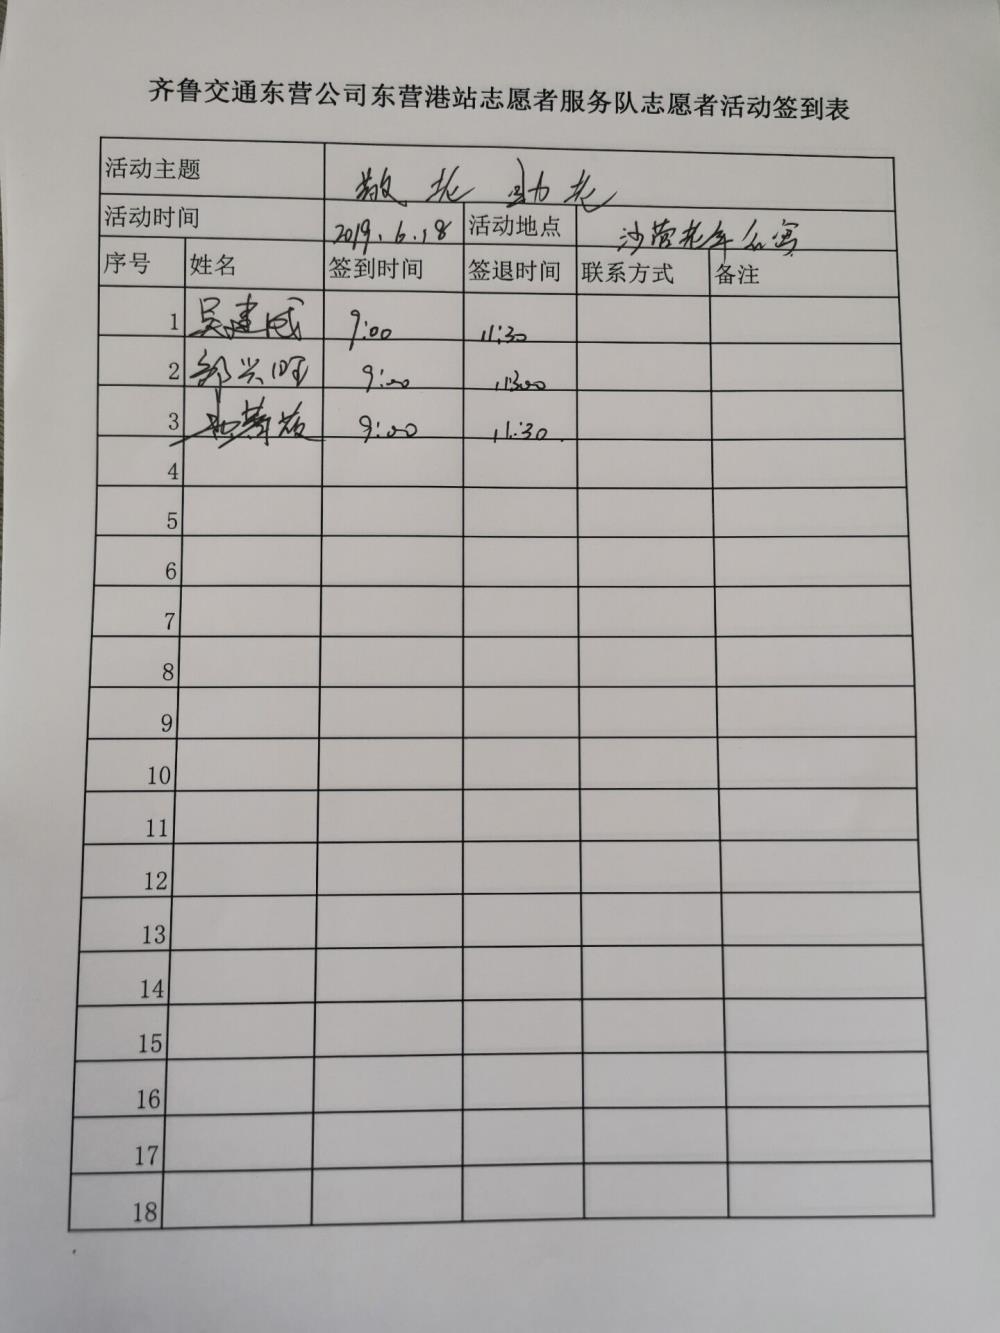 齐鲁交通东营公司东营港站志愿者服务队志愿者活动签到表
活动主题 敬老 助老
活动时间 2019.6.18 活动地点 沙营老年公寓
序号 姓名 签到时间 签退时间 联系方式 备注
1 吴建成 9:00 11:30
2 郭兴旺 9:00 11:300
3 9:00 11:30.
4
5
6
7
8
9
10
11
12
13
14
15
16
17
18